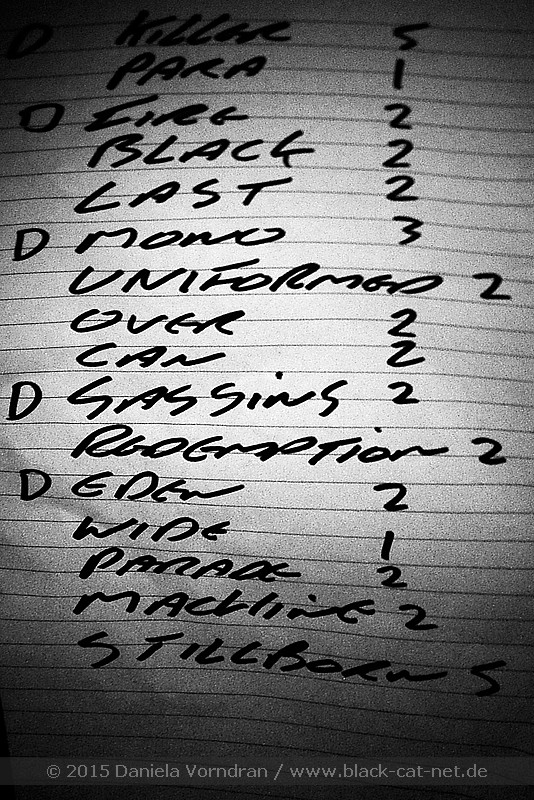 D KILLER 5
PARA 1
D FIRE 2
BLACK 2
LAST 2
D MONO 3
UNIFORMED 2
OVER 2
CAN 2
D GASSING 2
REDEMPTION 2
D EDEN 2
WIDE 1
PARADE 2
MACHINE 2
STILLBORN 5
© 2015 Daniela Vorndran / www.black-cat-net.de